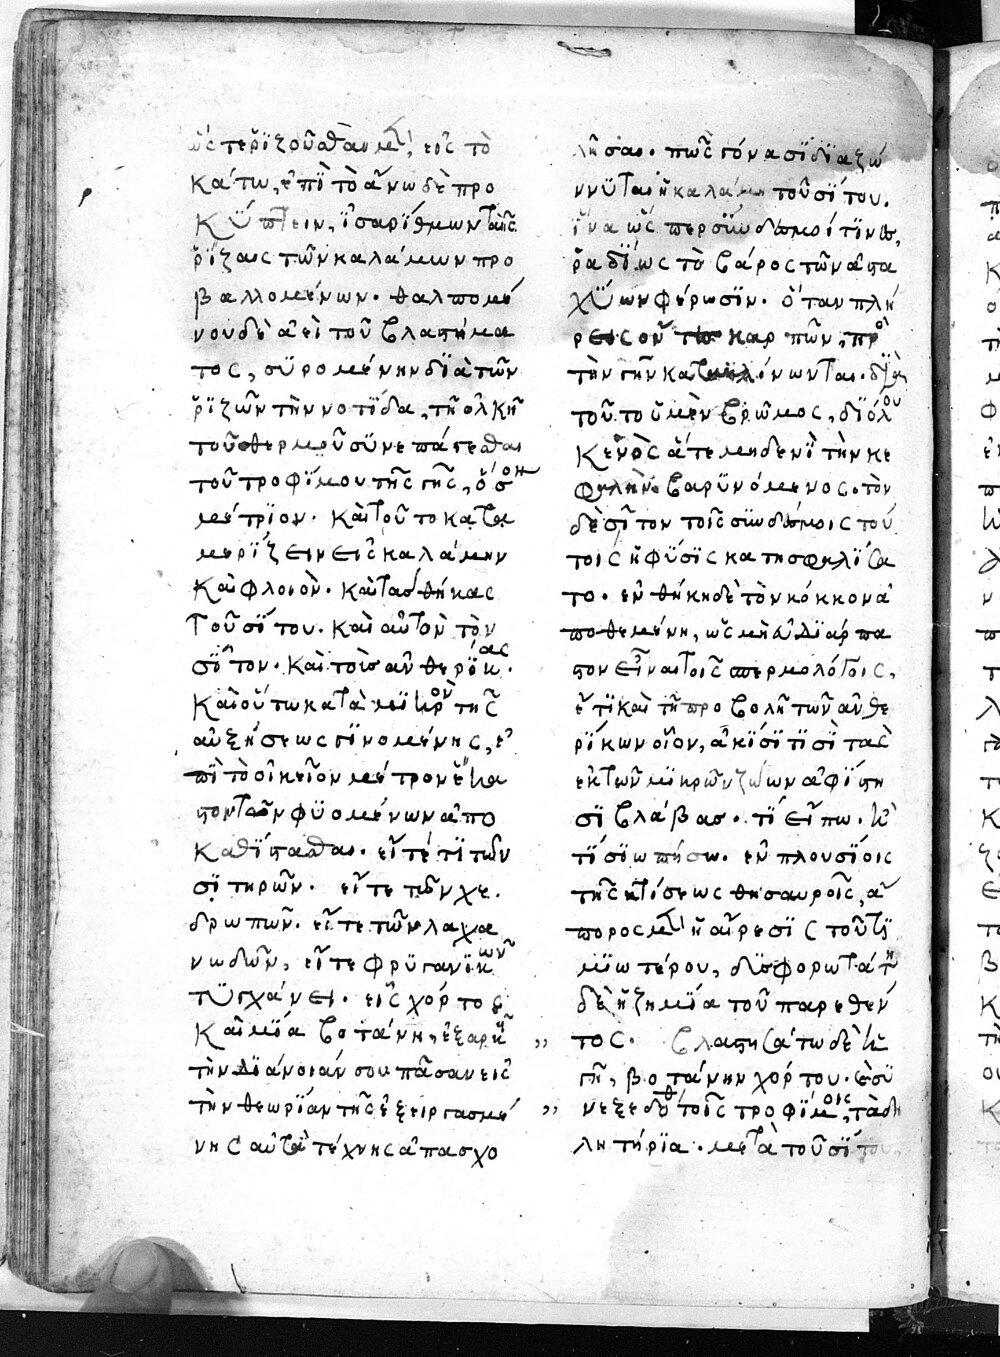 ὡς τε ῥιζοῦσθαι μὲν, εἰς τὸ
κάτω, ἐπὶ τὸ ἄνω δὲ προ
κύπτειν, ἰσαρίθμων ταῖς
ῥίζαις τῶν καλάμων προ
βαλλομένων. θαλπομέ
νου δὲ ἀεὶ τοῦ βλαστήμα
τος, συρομένην διὰ τῶν
ῥιζῶν τὴν νοτίδα, τῇ ὁλκῇ
τοῦ θερμοῦ συνεπάγεσθαι
τοῦ τροφίμου τῆς γῆς, ὅσον
μέτριον. καὶ τοῦτο κατα
μερίζειν εἰς καλάμην
καὶ φλοιὸν. καὶ τὰς θήκας
τοῦ σίτου. καὶ αὐτὸν τὸν
σῖτον. καὶ τοὺς ἀνθέρικας.
καὶ οὕτω κατὰ μικρὸν τῆς
αὐξήσεως γινομένης, ἐ
πὶ τὸ οἰκεῖον μέτρον ἕκα
στον τῶν φυομένων ἀπο
καθίστασθαι. εἴτέ τι τῶν
σιτηρῶν. εἴτε τῶν χε
δρωπῶν. εἴτε τῶν λαχα
νωδῶν, εἴτε φρυγανικῶν
τυγχάνει. εἷς χόρτος
καὶ μία βοτάνη, ἐξαρκεῖ
τὴν διάνοιάν σου πᾶσαν εἰς
τὴν θεωρίαν τῆς ἐξειργασμέ
νης αὐτὰ τέχνης ἀπασχο
λῆσαι. πῶς γόνασι διαζώ
ννυται ἡ καλάμη τοῦ σίτου.
ἵνα ὡς περ σύνδεσμοί τινες,
ῥαδίως τὸ βάρος τῶν ἀστα
χύων φέρωσιν. ὅταν πλή
ρεις οὖν καρπῶν, πρὸς
τὴν γῆν κατακλίνωνται. διὰ
τοῦτο ὁ μὲν βρῶμος, διόλου
κενὸς ἅτε μηδενὶ τὴν κε
φαλὴν βαρυνόμενος. τὸν
δὲ σῖτον τοῖς συνδέσμοις τού
τοις ἡ φύσις κατησφαλίσα
το. ἐν θήκῃ δὲ τὸν κόκκον ἀ
ποθεμένη, ὡς μὴ εὐδιάρπα
στον εἶναι τοῖς σπερμολόγοις,
ἔτι καὶ τῇ προβολῇ τῶν ἀνθε
ρίκων οἷον, ἀκίσί τισι τὰς
ἐκ τῶν μικρῶν ζώων ἀφίστη
σι βλάβας. τί εἴπω. καὶ
τί σιωπήσω. ἐν πλουσίοις
τῆς κτίσεως θησαυροῖς, ἄ
πορος μὲν ἡ αἵρεσις τοῦ τι
μιωτέρου, δυσφορωτάτη
δὲ ἡ ζημία τοῦ παρεθέν
τος. βλαστησάτω δὲ ἡ
γῆ, βοτάνην χόρτου. καὶ εὐθὺ
νεξεδόθη τοῖς τροφίμοις, τὰ δη
λητήρια. μετὰ τοῦ σίτου,